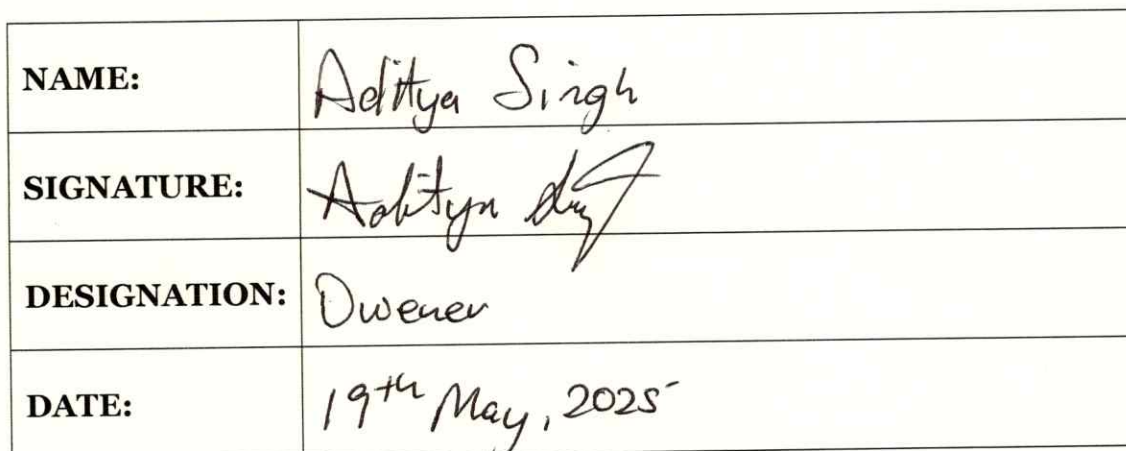 NAME: Aditya Singh
SIGNATURE: Aditya
DESIGNATION: Owener
DATE: 19th May, 2025